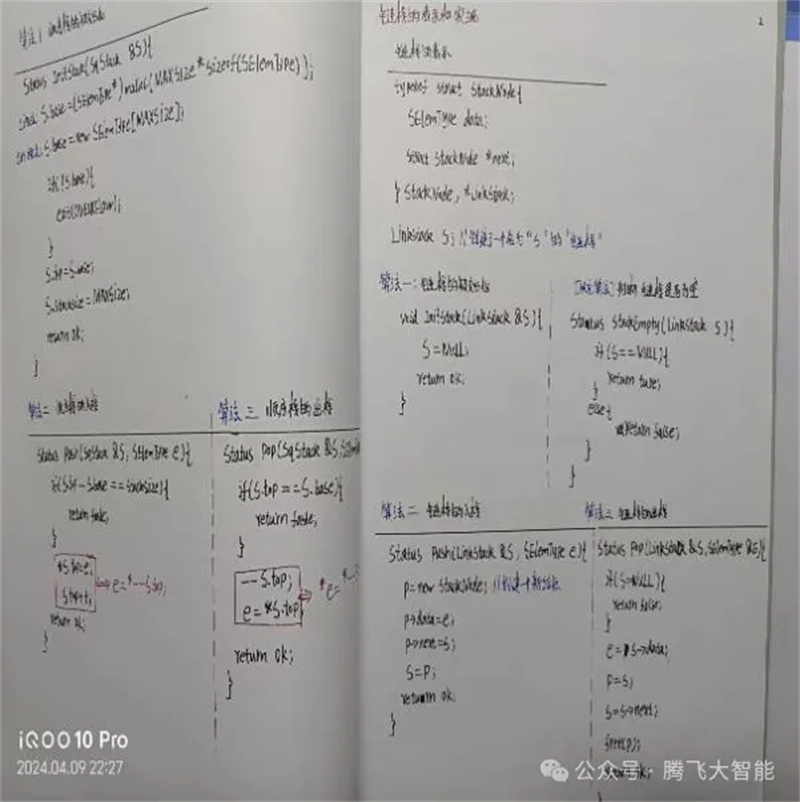 算法1 顺序栈的初始化
Status InitStack(SqStack &S){
S.base=(SElemType*)malloc(MAXSIZE*sizeof(SElemType));
S.base=new SElemType[MAXSIZE];
if(!S.base){
exit(OVERFLOW);
}
S.top=S.base;
S.stacksize=MAXSIZE;
return ok;
}
算法二 顺序栈的入栈
Status Push(SqStack &S, SElemType e){
if(S.top-S.base==stacksize){
return false;
}
*S.top=e;
S.top++;
e=*--S.top;
return ok;
}
算法三 顺序栈的出栈
Status Pop(SqStack &S,SElem
if(S.top==S.base){
return false;
}
--S.top;
e=*S.top;
*e=*--S
return ok;
}
链栈的表示和实现
2
链栈的表示
typedef struct StackNode{
SElemType data;
struct StackNode *next;
} StackNode, *LinkStack;
LinkStack S; //创建了一个名为"S"的"链栈"
算法一:链栈的初始化
void InitStack(LinkStack &S){
S=NULL;
return ok;
}
判断链栈是否为空
Status StackEmpty(LinkStack S){
if(S==NULL){
return ture;
}
else{
return false;
}
}
算法二 链栈的入栈
Status Push(LinkStack &S, SElemType e){
p=new StackNode; //创建一个新结点
p->data=e;
p->next=S;
S=p;
return ok;
}
算法三 链栈的出栈
Status Pop(LinkStack &S,SElemType &e){
if(S=NULL){
return false;
}
e=S->data;
p=S;
S=S->next;
free(p);
return ok;
}
iQOO10 Pro
2024.04.09 22:27
公众号·腾飞大智能